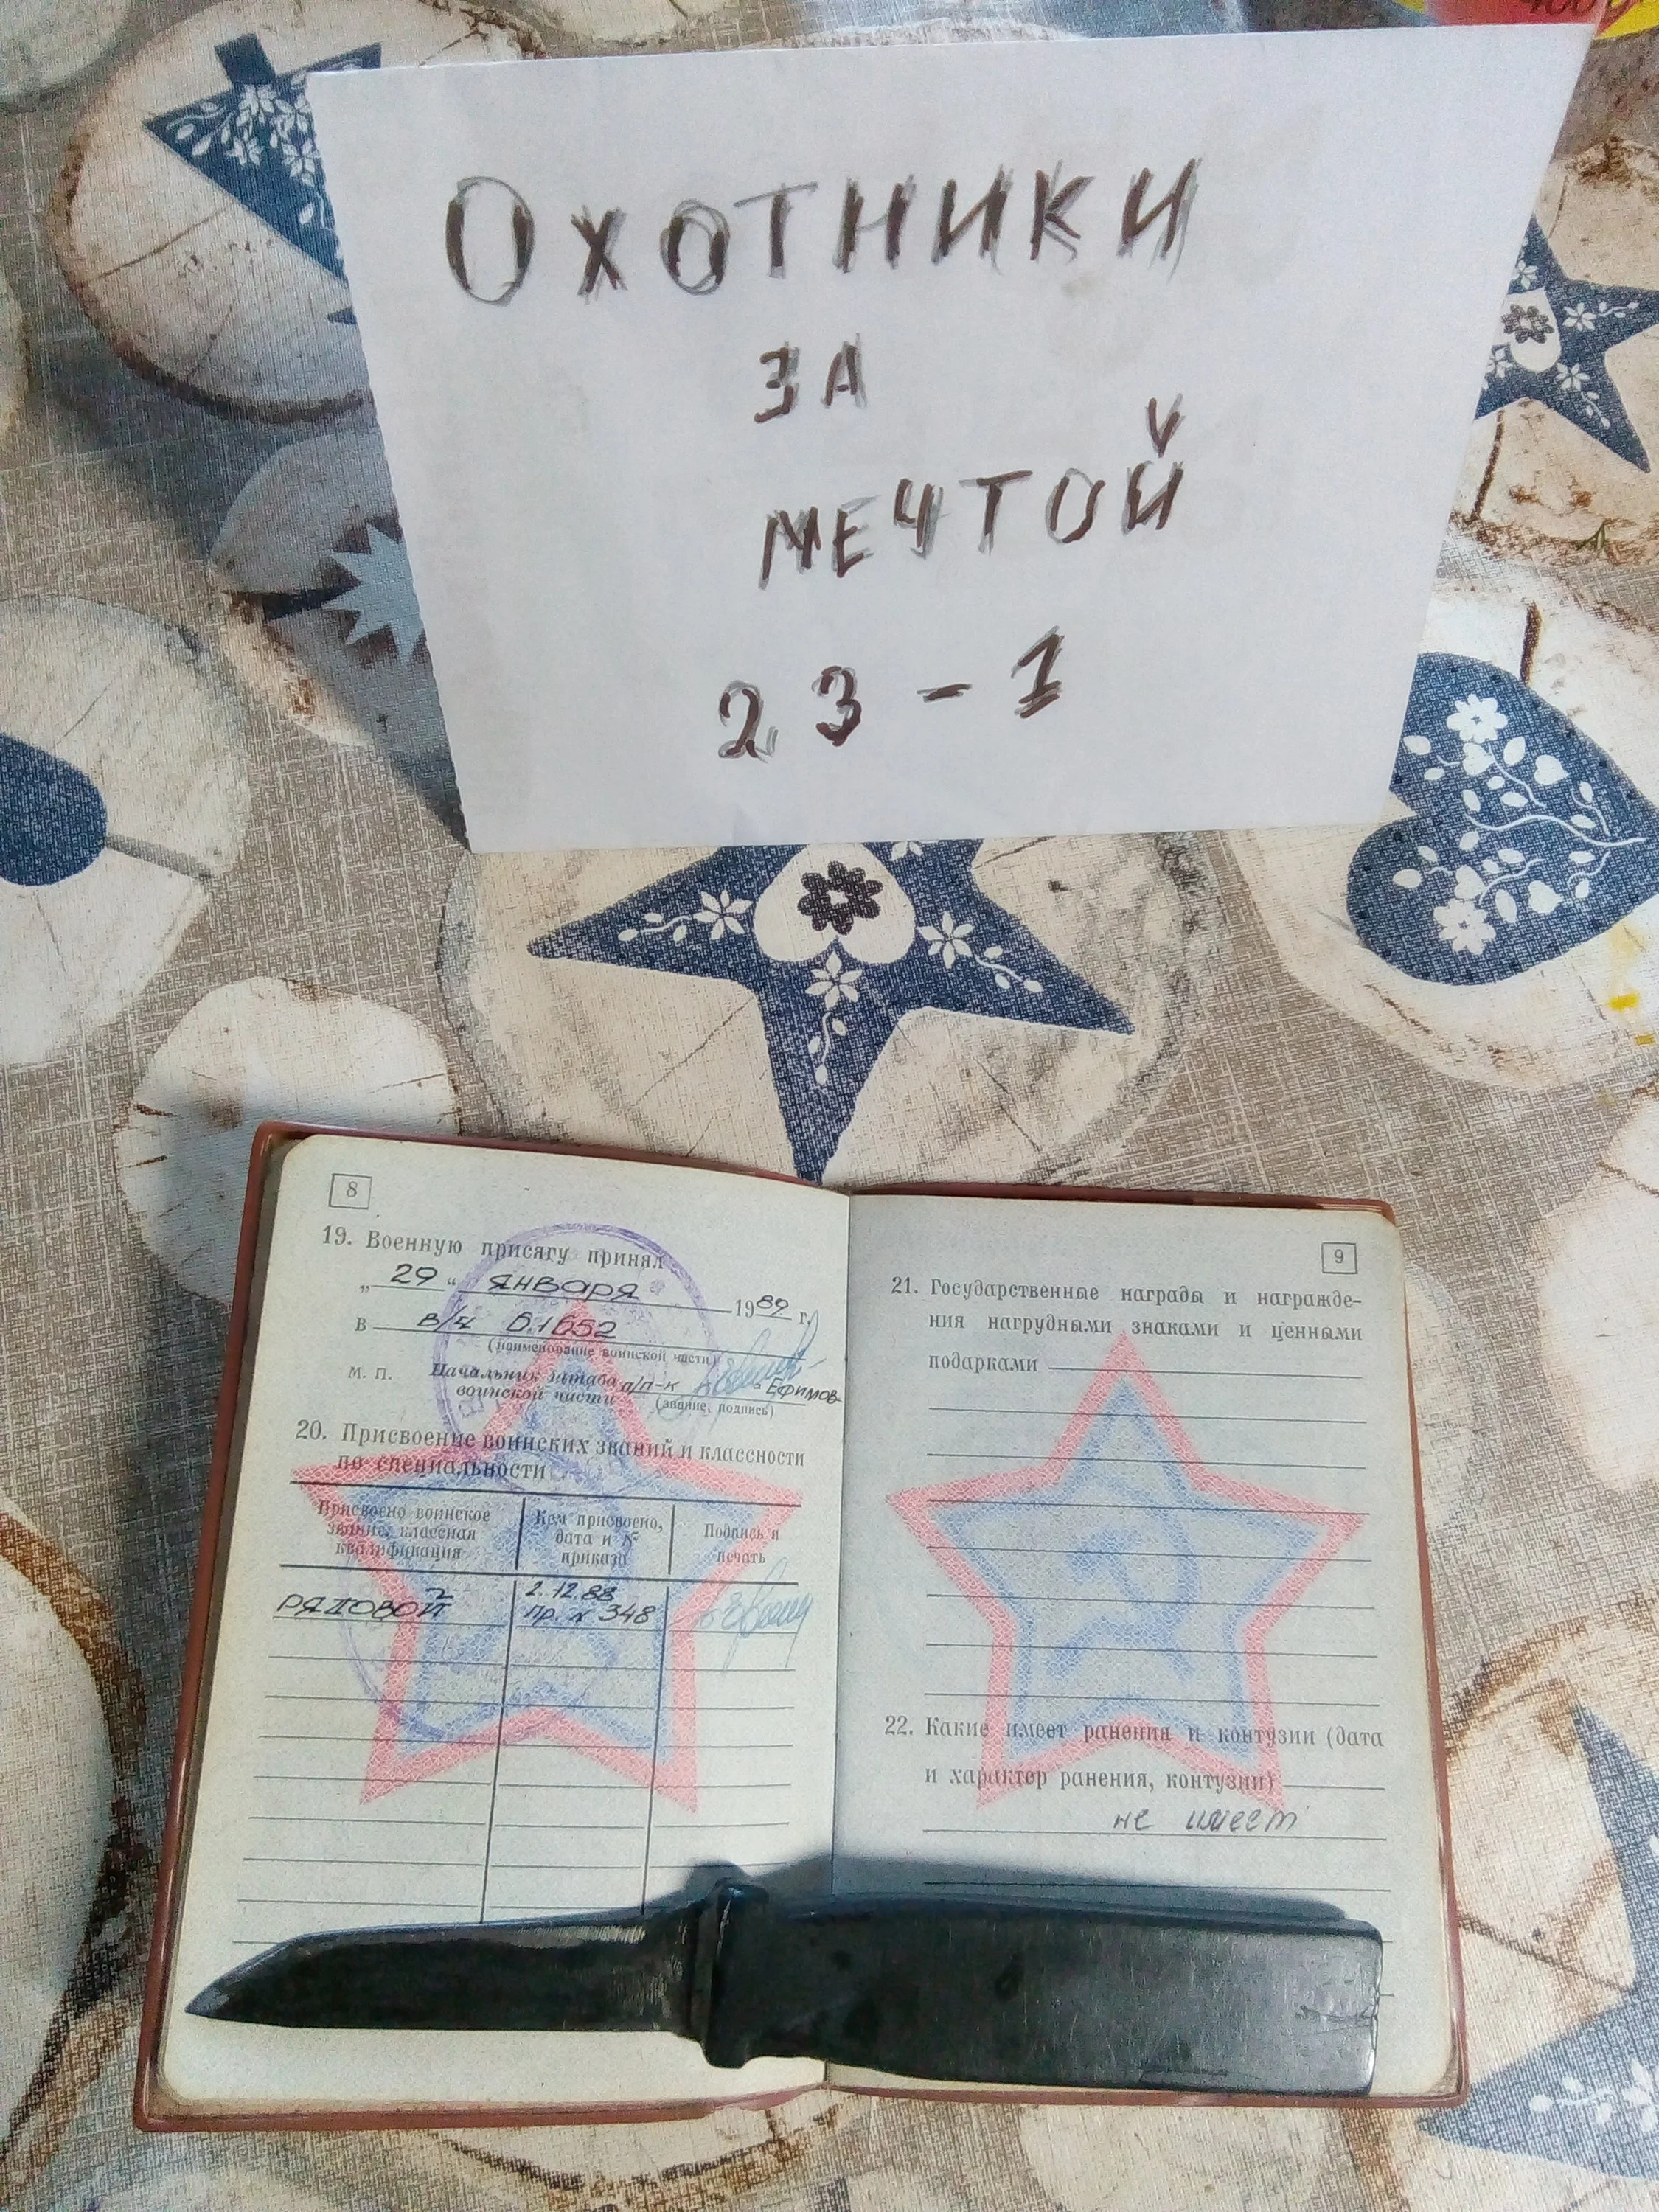 Охотники
за
мечтой
23-1
8
19. Военную присягу принял
„ 29 “ января 1989 г.
в в/ч 61652
(наименование воинской части)
М. П. Начальник штаба п/п-к Ефимов
воинской части (звание, подпись)
20. Присвоение воинских званий и классности
по специальности
Присвоено воинское
звание, классная
квалификация
Кем присвоено,
дата и №
приказа
Подпись и
печать
РЯДОВОЙ
2.12.88
пр. № 348
9
21. Государственные награды и награжде-
ния нагрудными знаками и ценными
подарками
22. Какие имеет ранения и контузии (дата
и характер ранения, контузии)
не имеет